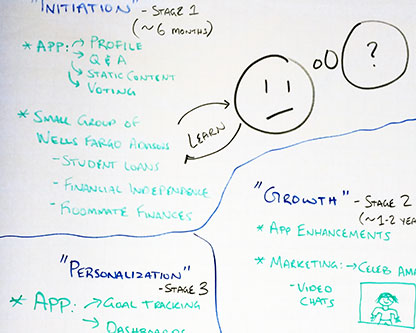 "INITIATION" - STAGE 1
(~ 6 MONTHS)
* APP: → PROFILE
→ Q & A
→ STATIC CONTENT
→ VOTING
?
* SMALL GROUP OF
WELLS FARGO ADVISORS
- STUDENT LOANS
- FINANCIAL INDEPENDENCE
- ROOMMATE FINANCES
LEARN
"GROWTH" - STAGE 2
(~1-2 YEA
* APP ENHANCEMENTS
* MARKETING: → CELEB AM
- VIDEO
CHATS
"PERSONALIZATION"
- STAGE 3
* APP: → GOAL TRACKING
→ DASHBOARDS